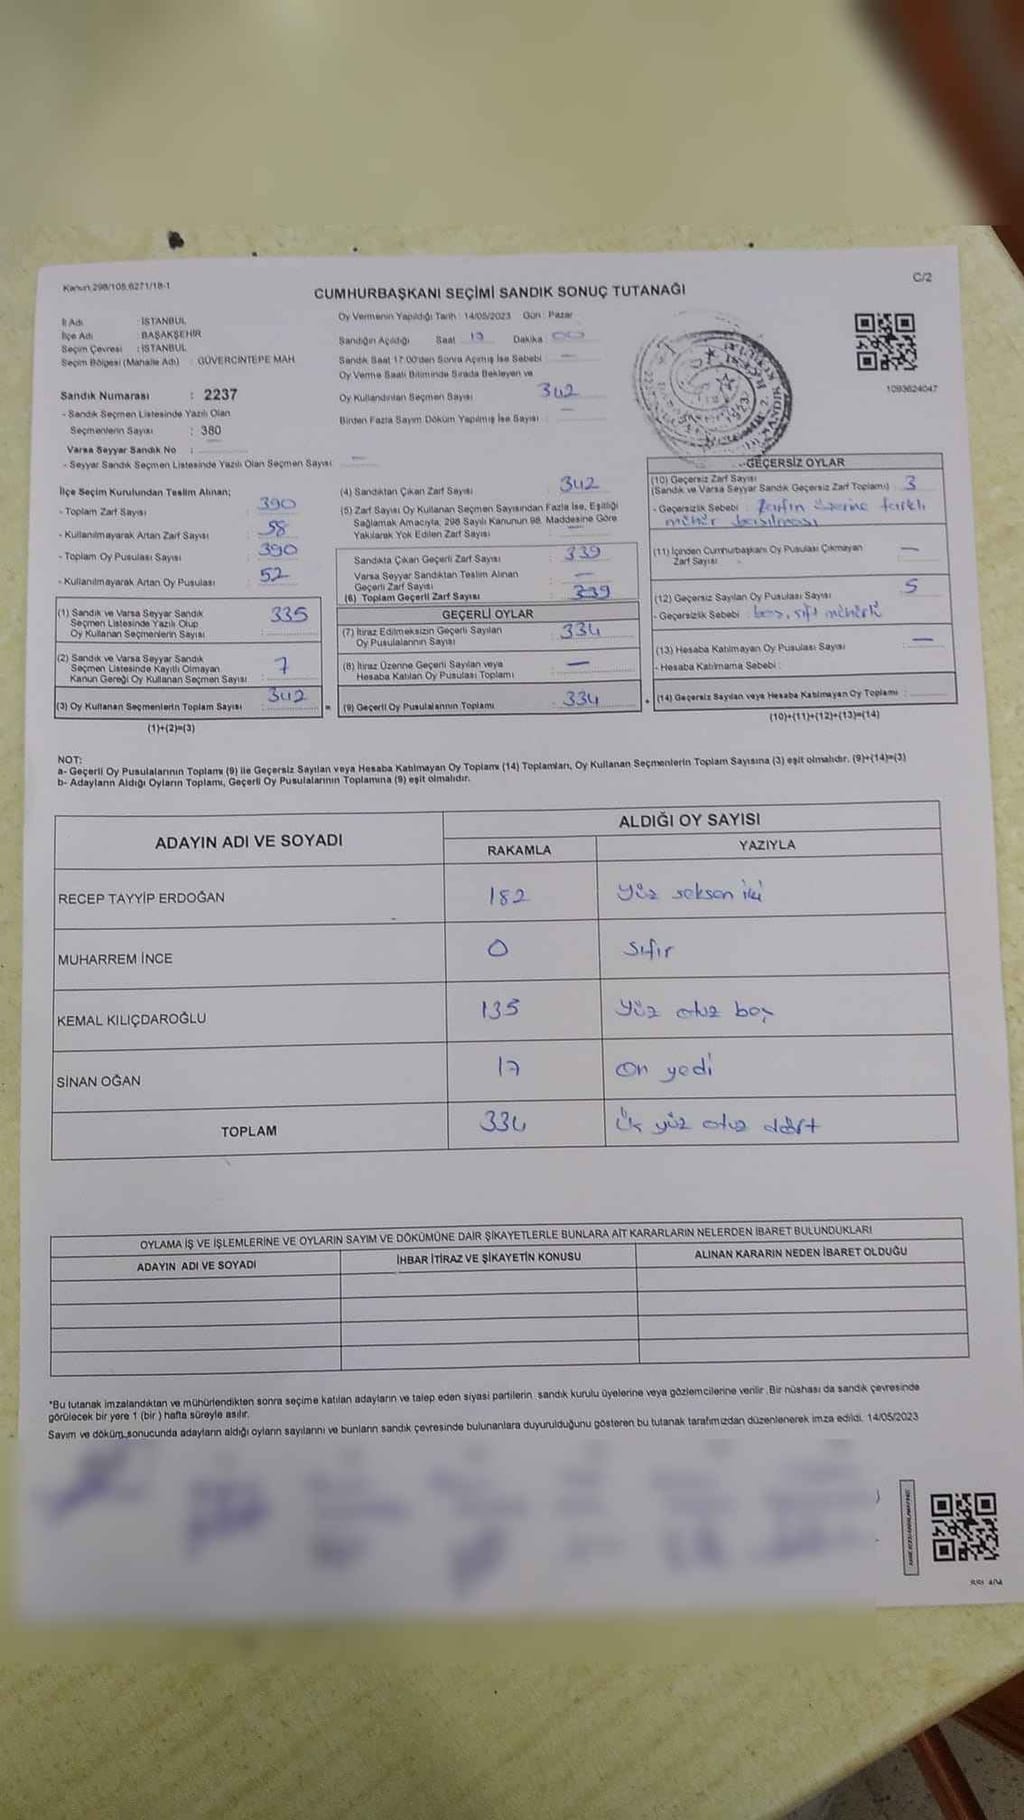 Kanun 298/105,6271/18-1
C/2
CUMHURBAŞKANI SEÇİMİ SANDIK SONUÇ TUTANAĞI
İl Adı : İSTANBUL
İlçe Adı : BAŞAKŞEHİR
Seçim Çevresi : İSTANBUL
Seçim Bölgesi (Mahalle Adı) : GÜVERCİNTEPE MAH.
Sandık Numarası : 2237
- Sandık Seçmen Listesinde Yazılı Olan
Seçmenlerin Sayısı : 380
Varsa Seyyar Sandık No :
- Seyyar Sandık Seçmen Listesinde Yazılı Olan Seçmen Sayısı : —
Oy Vermenin Yapıldığı Tarih : 14/05/2023 Gün : Pazar
Sandığın Açıldığı Saat Dakika 00
Sandık Saat 17:00'den Sonra Açılmış İse Sebebi : —
Oy Verme Saati Bitiminde Sırada Bekleyen ve
Oy Kullandırılan Seçmen Sayısı : 342
Birden Fazla Sayım Döküm Yapılmış İse Sayısı : —
1093624047
İlçe Seçim Kurulundan Teslim Alınan;
- Toplam Zarf Sayısı : 390
- Kullanılmayarak Artan Zarf Sayısı : 58
- Toplam Oy Pusulası Sayısı : 390
- Kullanılmayarak Artan Oy Pusulası : 52
(1) Sandık ve Varsa Seyyar Sandık
Seçmen Listesinde Yazılı Olup
Oy Kullanan Seçmenlerin Sayısı : 335
(2) Sandık ve Varsa Seyyar Sandık
Seçmen Listesinde Kayıtlı Olmayan
Kanun Gereği Oy Kullanan Seçmen Sayısı : 7
(3) Oy Kullanan Seçmenlerin Toplam Sayısı : 342
(1)+(2)=(3)
(4) Sandıktan Çıkan Zarf Sayısı : 342
(5) Zarf Sayısı Oy Kullanan Seçmen Sayısından Fazla İse, Eşitliği
Sağlamak Amacıyla, 298 Sayılı Kanunun 98. Maddesine Göre
Yakılarak Yok Edilen Zarf Sayısı : —
Sandıkta Çıkan Geçerli Zarf Sayısı : 339
Varsa Seyyar Sandıktan Teslim Alınan
Geçerli Zarf Sayısı : —
(6) Toplam Geçerli Zarf Sayısı : 339
GEÇERLİ OYLAR
(7) İtiraz Edilmeksizin Geçerli Sayılan
Oy Pusulalarının Sayısı : 334
(8) İtiraz Üzerine Geçerli Sayılan veya
Hesaba Katılan Oy Pusulası Toplamı : —
= (9) Geçerli Oy Pusulalarının Toplamı : 334
GEÇERSİZ OYLAR
(10) Geçersiz Zarf Sayısı
(Sandık ve Varsa Seyyar Sandık Geçersiz Zarf Toplamı) : 3
- Geçersizlik Sebebi : Zarfın üzerine farklı
mühür basılması
(11) İçinden Cumhurbaşkanı Oy Pusulası Çıkmayan
Zarf Sayısı : —
(12) Geçersiz Sayılan Oy Pusulası Sayısı : 5
- Geçersizlik Sebebi : boş, çift mühürlü
(13) Hesaba Katılmayan Oy Pusulası Sayısı : —
- Hesaba Katılmama Sebebi :
+ (14) Geçersiz Sayılan veya Hesaba Katılmayan Oy Toplamı :
(10)+(11)+(12)+(13)=(14)
NOT:
a- Geçerli Oy Pusulalarının Toplamı (9) ile Geçersiz Sayılan veya Hesaba Katılmayan Oy Toplamı (14) Toplamları, Oy Kullanan Seçmenlerin Toplam Sayısına (3) eşit olmalıdır. (9)+(14)=(3)
b- Adayların Aldığı Oyların Toplamı, Geçerli Oy Pusulalarının Toplamına (9) eşit olmalıdır.
ADAYIN ADI VE SOYADI
ALDIĞI OY SAYISI
RAKAMLA YAZIYLA
RECEP TAYYİP ERDOĞAN 182 yüz seksen iki
MUHARREM İNCE 0 sıfır
KEMAL KILIÇDAROĞLU 135 yüz otuz beş
SİNAN OĞAN 17 on yedi
TOPLAM 334 üç yüz otuz dört
OYLAMA İŞ VE İŞLEMLERİNE VE OYLARIN SAYIM VE DÖKÜMÜNE DAİR ŞİKAYETLERLE BUNLARA AİT KARARLARIN NELERDEN İBARET BULUNDUKLARI
ADAYIN ADI VE SOYADI İHBAR İTİRAZ VE ŞİKAYETİN KONUSU ALINAN KARARIN NEDEN İBARET OLDUĞU
*Bu tutanak imzalandıktan ve mühürlendikten sonra seçime katılan adayların ve talep eden siyasi partilerin sandık kurulu üyelerine veya gözlemcilerine verilir .Bir nüshası da sandık çevresinde
görülecek bir yere 1 (bir ) hafta süreyle asılır.
Sayım ve döküm sonucunda adayların aldığı oyların sayılarını ve bunların sandık çevresinde bulunanlara duyurulduğunu gösteren bu tutanak tarafımızdan düzenlenerek imza edildi. 14/05/2023